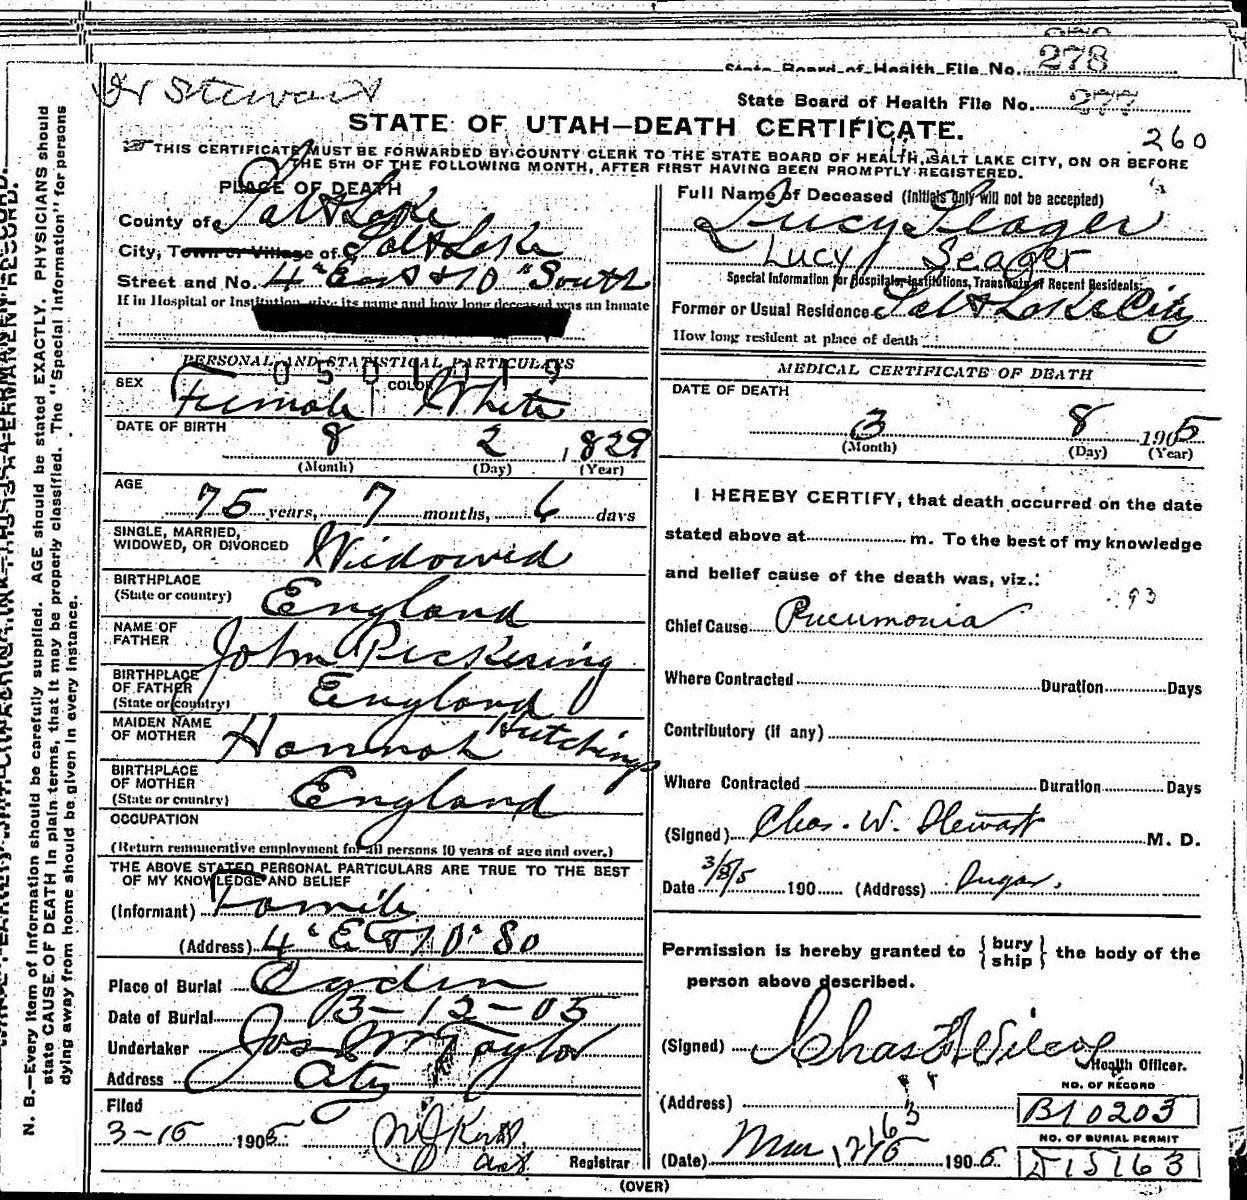 278
State Board of Health File No.
Dr Stewart
State Board of Health File No. 277
STATE OF UTAH—DEATH CERTIFICATE.
260
THIS CERTIFICATE MUST BE FORWARDED BY COUNTY CLERK TO THE STATE BOARD OF HEALTH, SALT LAKE CITY, ON OR BEFORE
THE 5TH OF THE FOLLOWING MONTH, AFTER FIRST HAVING BEEN PROMPTLY REGISTERED.
PLACE OF DEATH
County of Salt Lake
City, Town or Village of Salt Lake
Street and No. 4" East & 10" South
If in Hospital or Institution give its name and how long deceased was an Inmate
PERSONAL AND STATISTICAL PARTICULARS
0501119
SEX Female COLOR White
DATE OF BIRTH 8 2 1829
(Month) (Day) (Year)
AGE 75 years, 7 months, 6 days
SINGLE, MARRIED,
WIDOWED, OR DIVORCED Widowed
BIRTHPLACE
(State or country) England
NAME OF
FATHER John Pickering
BIRTHPLACE
OF FATHER
(State or country) England
MAIDEN NAME
OF MOTHER Hannah Hutchings
BIRTHPLACE
OF MOTHER
(State or country) England
OCCUPATION
(Return remunerative employment for all persons 10 years of age and over.)
THE ABOVE STATED PERSONAL PARTICULARS ARE TRUE TO THE BEST
OF MY KNOWLEDGE AND BELIEF
(Informant) Family
(Address) 4" E & 10" So
Place of Burial Ogden
Date of Burial 3-12-05
Undertaker Jos Wm Taylor
Address City
Filed
3-15 1905
Registrar
Full Name of Deceased (Initials only will not be accepted)
Lucy Seager
Lucy Seager
Special Information for Hospitals, Institutions, Transients or Recent Residents:
Former or Usual Residence Salt Lake City
How long resident at place of death
MEDICAL CERTIFICATE OF DEATH
DATE OF DEATH
3 8 1905
(Month) (Day) (Year)
I HEREBY CERTIFY, that death occurred on the date
stated above at m. To the best of my knowledge
and belief cause of the death was, viz.:
93
Chief Cause Pneumonia
Where Contracted Duration Days
Contributory (if any)
Where Contracted Duration Days
(Signed) Chas. W. Stewart M. D.
Date 3/8/5 190 (Address) Sugar.
Permission is hereby granted to {bury ship} the body of the
person above described.
(Signed) Chas Wilcox
Health Officer.
(Address)
NO. OF RECORD
B10203
NO. OF BURIAL PERMIT
(Date) Mar 1905 D15163
(OVER)
N. B.—Every item of Information should be carefully supplied. AGE should be stated EXACTLY. PHYSICIANS should
state CAUSE OF DEATH in plain terms, that it may be properly classified. The "Special Information" for persons
dying away from home should be given in every instance.